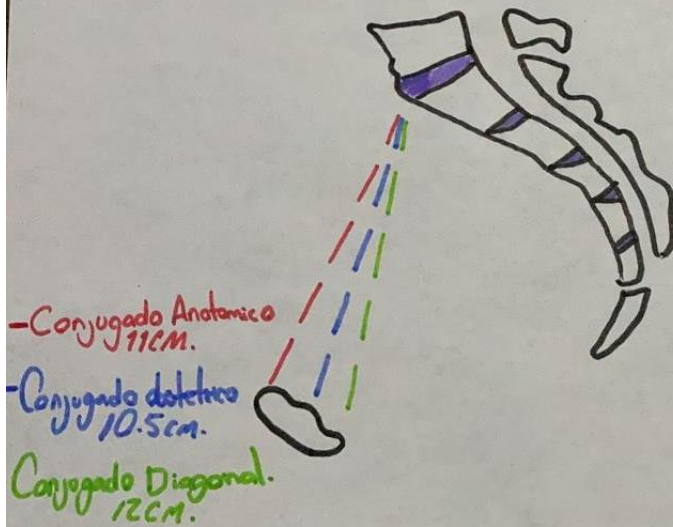 -Conjugado Anatomico
11CM.
-Conjugado obstetrico
10.5cm.
Conjugado Diagonal.
12CM.